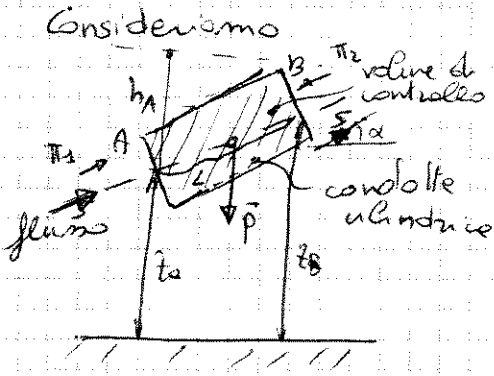 Consideriamo
B
π₂
volume di
controllo
h_A
A
S
α
π₁
L
condotte
cilindrica
flusso
p⃗
z_a
z_B